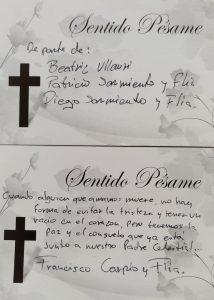 Sentido Pésame
De parte de:
Beatriz Villavi
Patricio Sarmiento y Flia
Diego Sarmiento y Flia.
Sentido Pésame
Cuando alguien que amamos muere, no hay
forma de evitar la tristeza y tener un
vacio en el corazón, pero tenemos la
paz y el consuelo que ya está
junto a nuestro Padre Celestial...
Francisco Carpio y Flia.